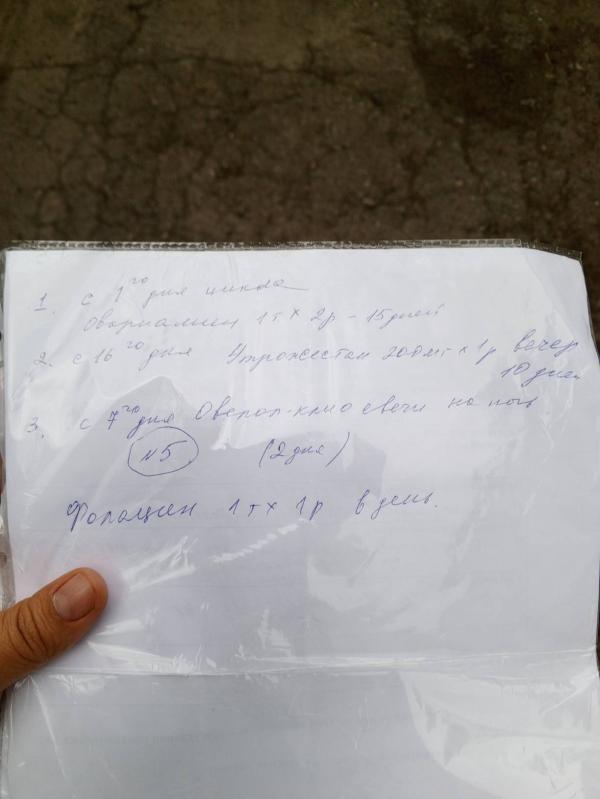 1. с 1го дня цикла
Овариамин 1т x 2р - 15 дней
2. с 16го дня Утрожестан 200мг x 1р вечер
10 дней
3. с 7го дня свечи на ночь
N5 (2 дня)
Фолацин 1т x 1р в день.